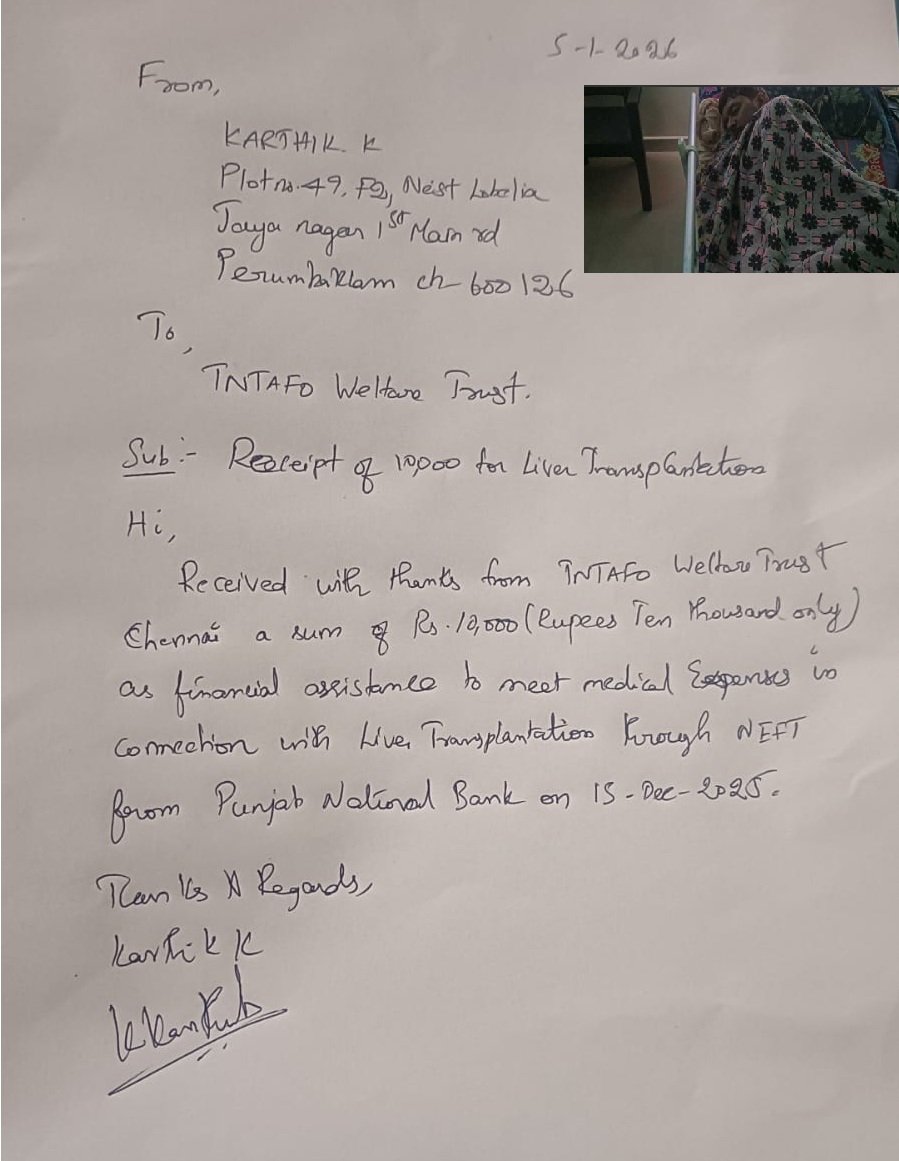 5-1-2026
From,
KARTHIK. K
Plot no. 49, F2, Neist Lobelia
Jaya nagar 1st Main rd
Perumbakkam ch 600126
To,
TNTAFO Welfare Trust.
Sub:- Receipt of 10,000 for Liver Transplantation
Hi,
Received with thanks from TNTAFO Welfare Trust
Chennai a sum of Rs. 10,000 (Rupees Ten thousand only)
as financial assistance to meet medical Expenses in
connection with Liver Transplantation through NEFT
from Punjab National Bank on 15-Dec-2025.
Thanks & Regards,
Karthik K